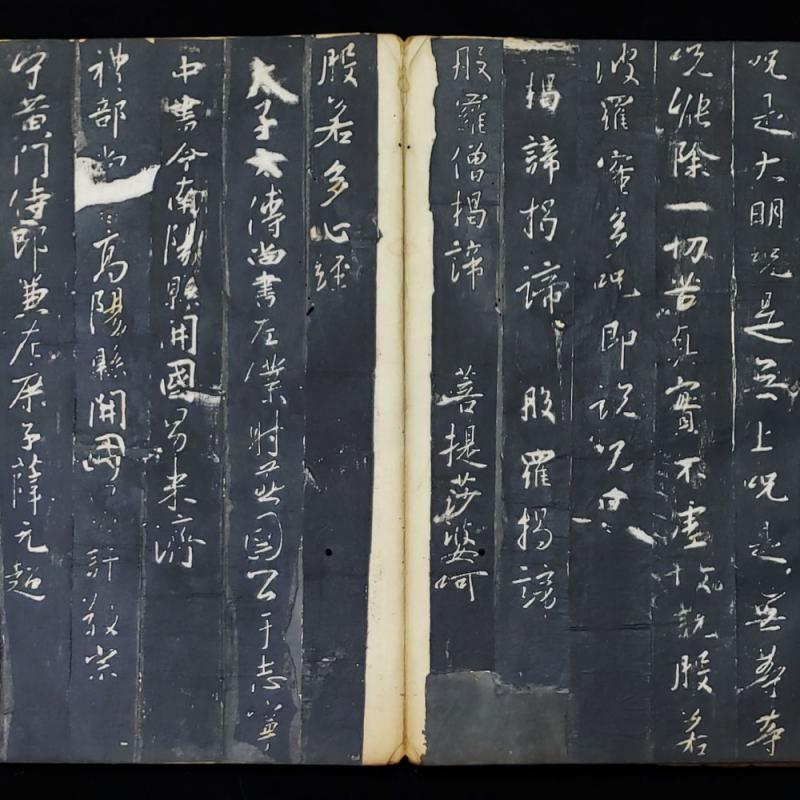 咒是大明咒是無上咒是無等等
咒能除一切苦真實不虛故說般若
波羅蜜多咒即說咒曰
揭諦揭諦 般羅揭諦
般羅僧揭諦 菩提莎婆呵
般若多心經
太子太傅尚書左僕射燕國公于志寧
中書令南陽縣開國男来濟
禮部尚高陽縣開國許敬宗
守黃門侍郎兼左庶子薛元超